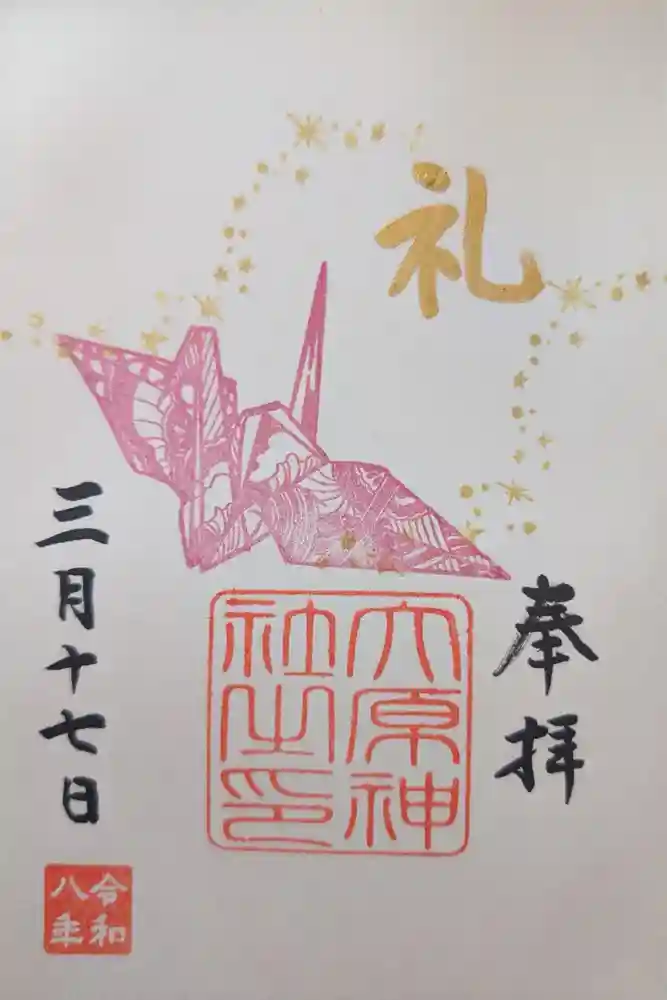 礼
奉拝
大原神
社之印
三月十七日
令和
八年